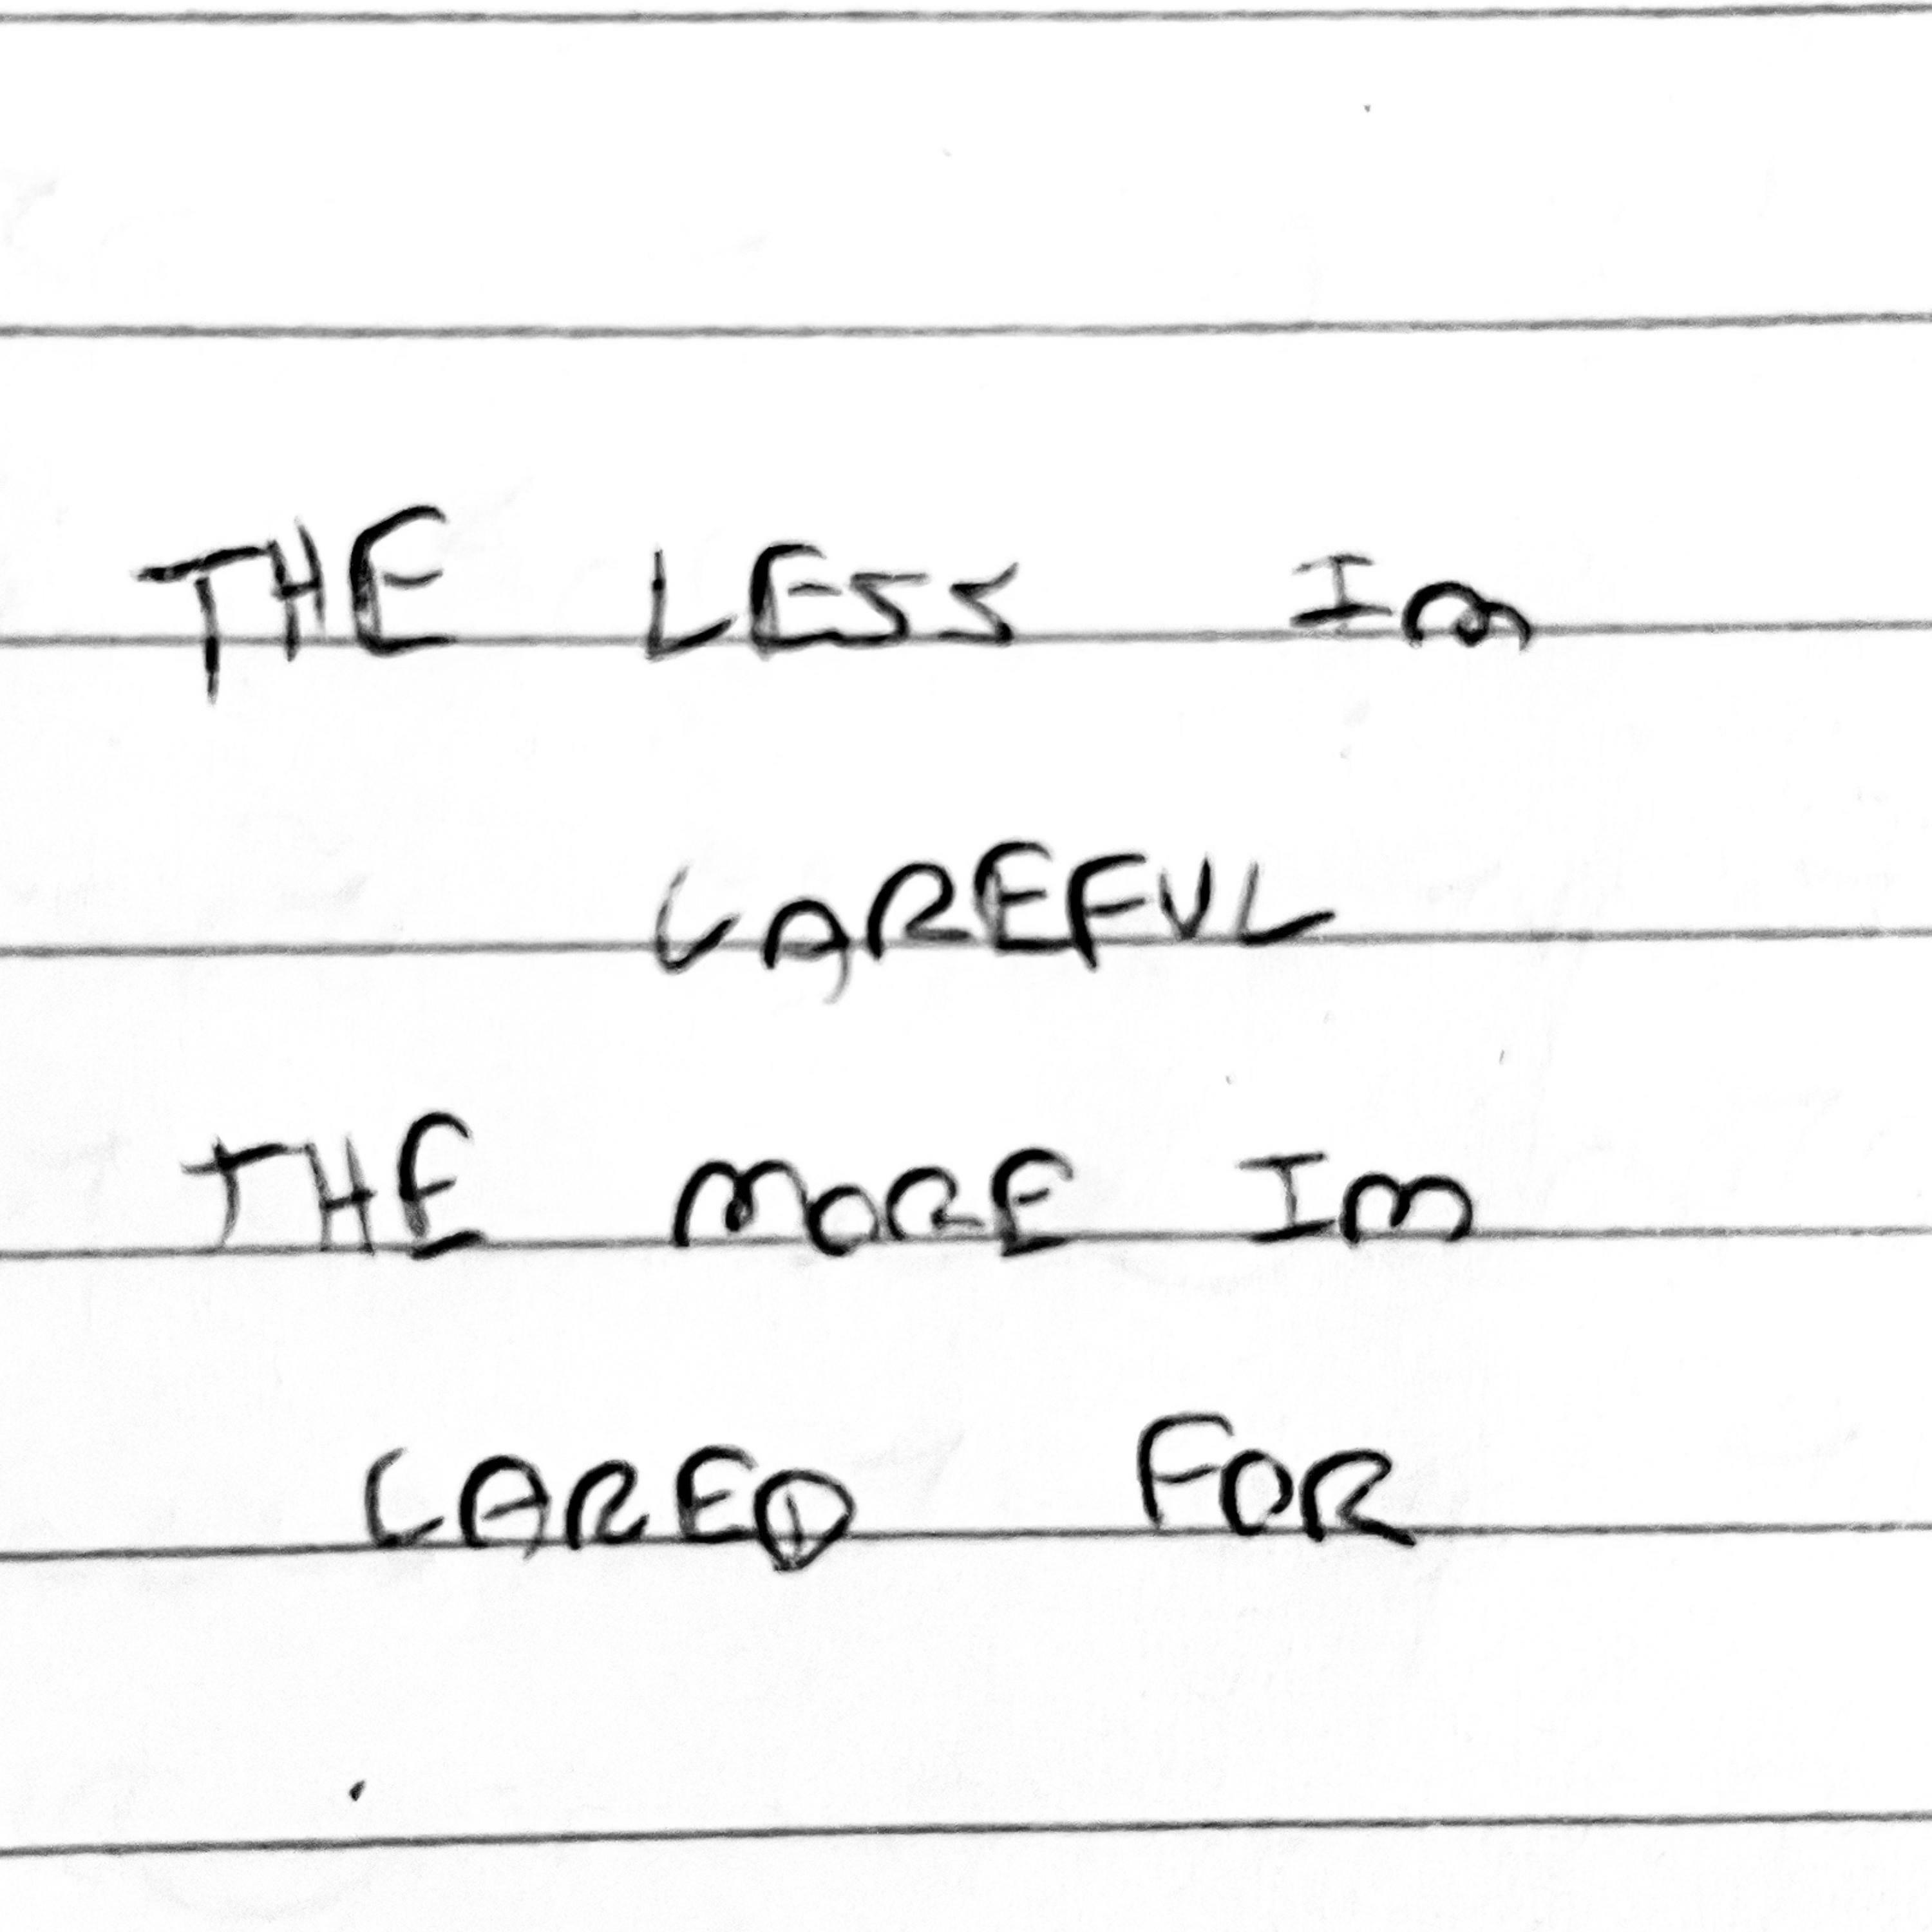 THE LESS Im
CAREFUL
THE MORE Im
CARED FOR